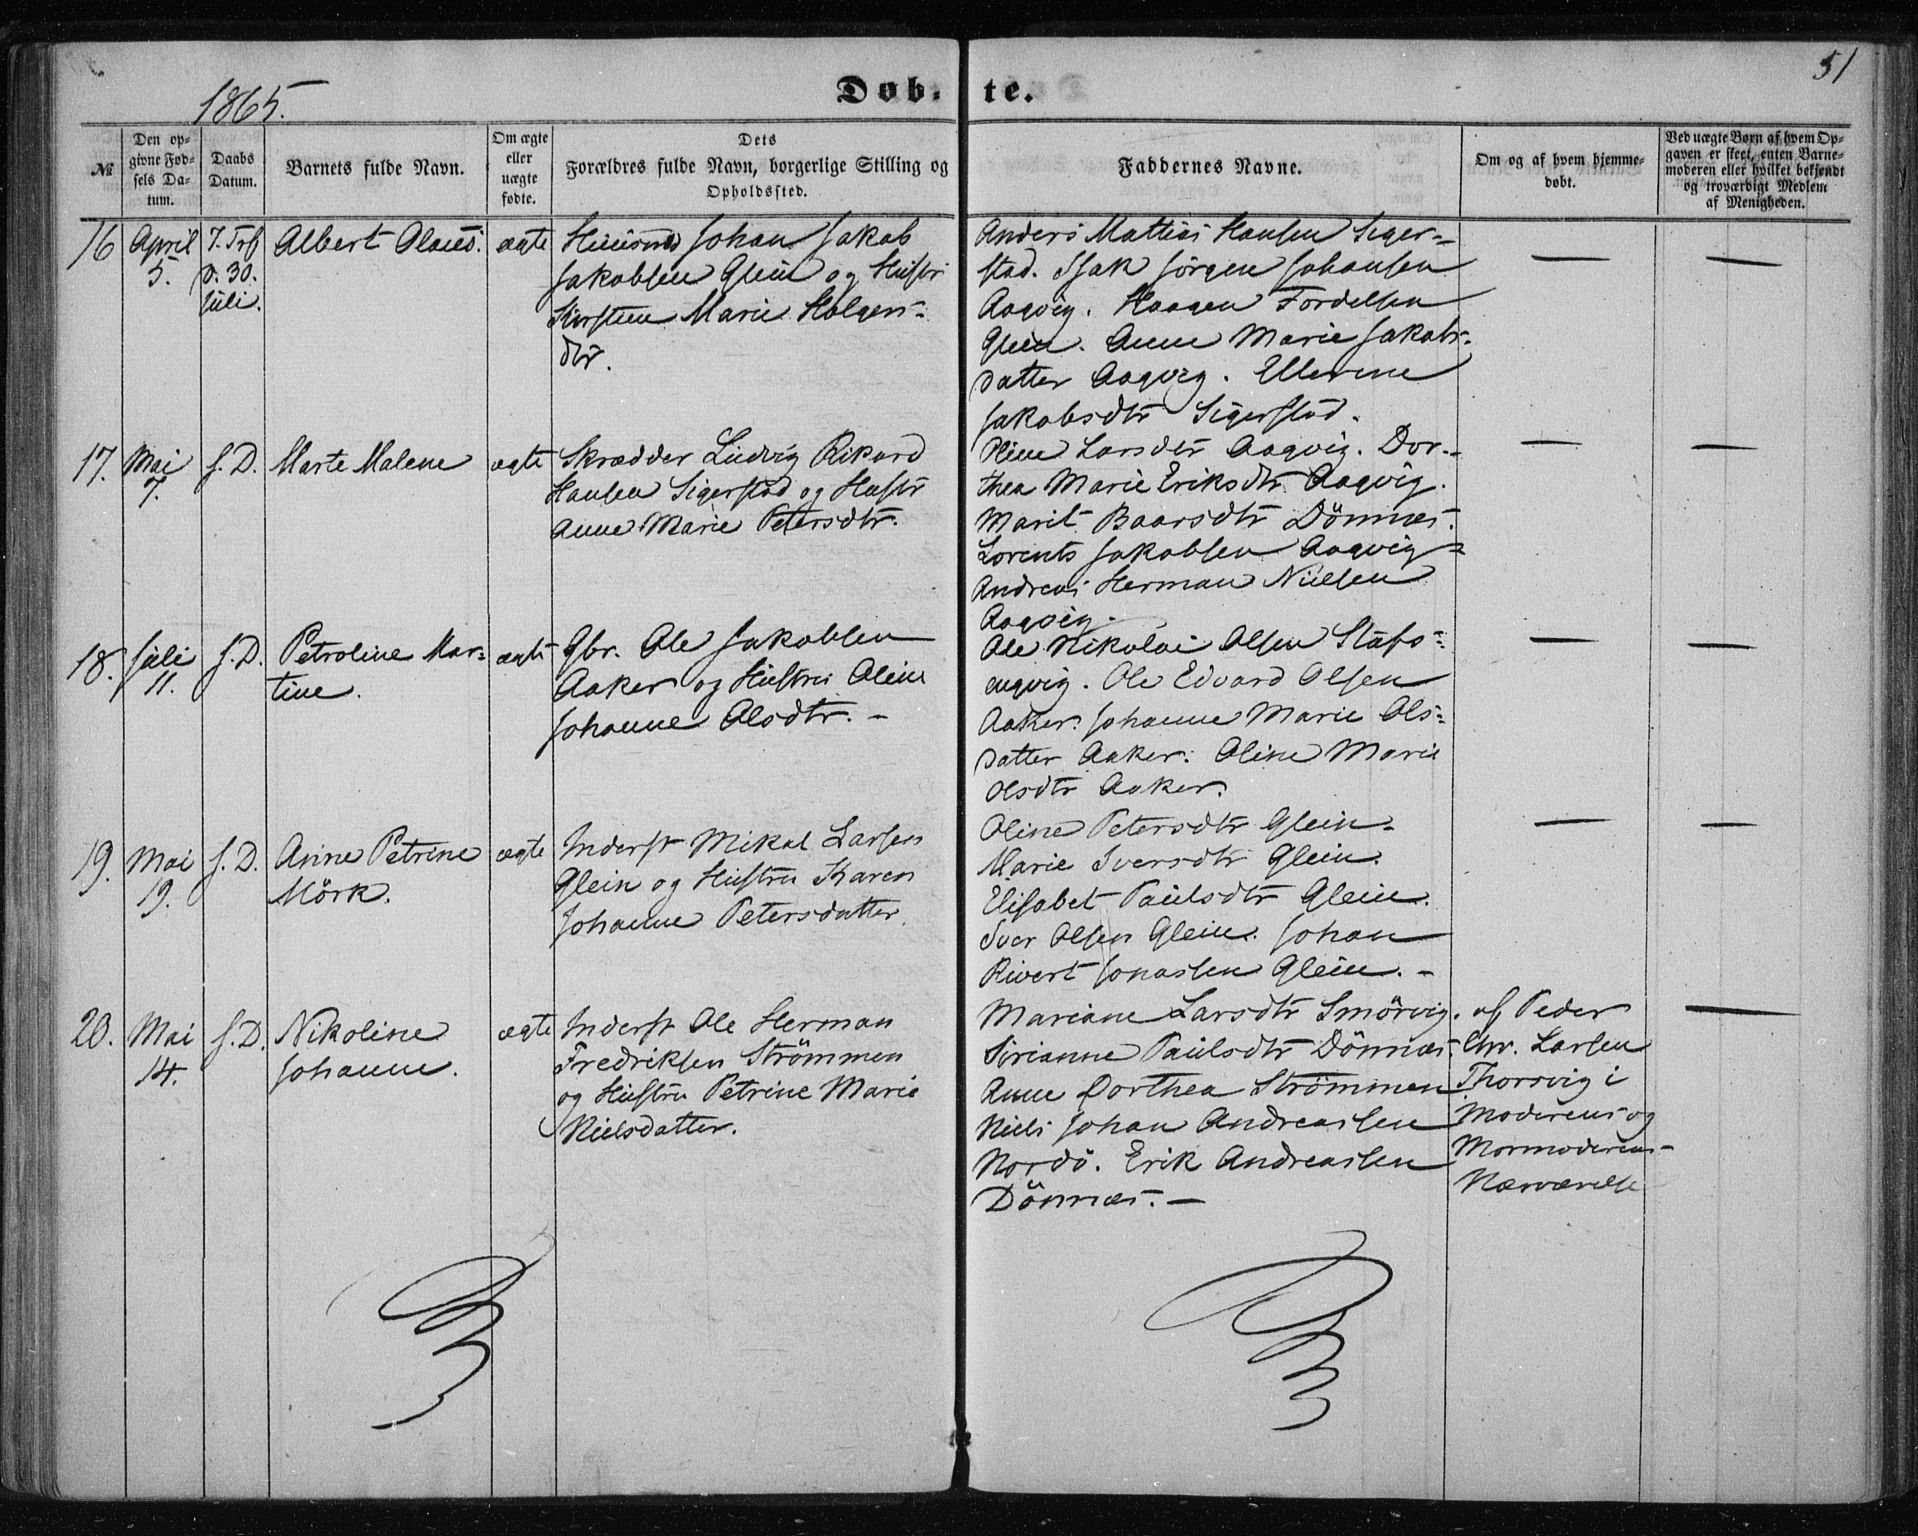 51
1865.
Døb- te.
№
Den op-
givne Fød-
sels Da-
tum.
Daabs
Datum.
Barnets fulde Navn.
Om ægte
eller
uægte
fødte.
Dets
Forældres fulde Navn, borgerlige Stilling og
Opholdssted.
Faddernes Navne.
Om og af hvem hjemme-
døbt.
Ved uægte Børn af hvem Op-
gaven er skeet, enten Barne-
moderen eller hvilket bekjendt
og troværdigt Medlem
af Menigheden.
16
April
5.
7. Trf
d. 30.
Juli.
Albert Olaus.
ægte
Huusmd Johan Jakob
Jakobsen Glein og Hustr
Kirsten Marie Holgers-
dtr.
Anders Mattias Hansen Siger-
stad. Isak Jørgen Johansen
Aagvig. Haagen Tordelsen
Glein. Anne Marie Jakobs-
datter Aagvig. Ellerine
Jakobsdtr Sigerstad.
—
—
17.
Mai
7.
s. D.
Marte Malene
ægte
Skrædder Ludvig Rikard
Hansen Sigerstad og Hustr
Anne Marie Petersdtr.
Oline Larsdtr Aagvig. Dor-
thea Marie Eriksdtr Aagvig.
Marit Baarsdtr Dönnæs.
Lorents Jakobsen Aagvig-
Andreas Herman Nielsen
Aagvig.
—
—
18.
Juli
11.
s. D.
Petroline Mar-
tine.
ægte
Gbr. Ole Jakobsen
Aaker og Hustru Oline
Johanne Olsdtr. -
Ole Nikolai Olsen Stafs-
engvig. Ole Edvard Olsen
Aaker. Johanne Marie Ols-
datter Aaker. Oline Marie
Olsdtr Aaker.
—
—
19.
Mai
19.
s. D.
Anne Petrine
Mörk.
ægte
Inderst Mikal Larsen
Glein og Hustru Karen
Johanne Petersdatter
Oline Petersdtr Glein.
Marie Iversdtr Glein.
Elisabet Paulsdtr Glein.
Iver Olsen Glein. Johan
Rivert Jonassen Glein. -
—
—
20.
Mai
14.
s. D.
Nikoline
Johanne.
ægte
Inderst Ole Herman
Fredriksen Strömmen
og Hustru Petrine Marie
Nielsdatter.
Mariane Larsdtr Smörvig.
Sirianne Paulsdtr Dönnæs.
Anne Dorthea Strömmen
Niels Johan Andreassen
Nordö. Erik Andreassen
Dönnæs. —
af Peder
Chr. Larsen
Thorsvig i
Moderens og
Mormoderens-
Nærværelse
—